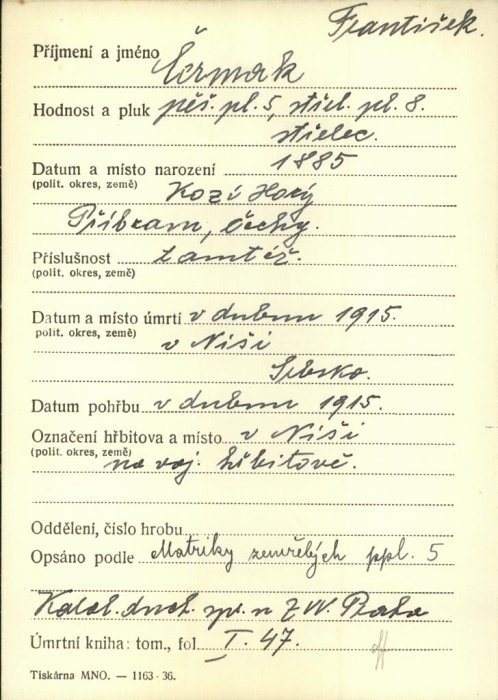 František.
Příjmení a jméno Čermak
Hodnost a pluk pěš. pl. 5, střel. pl. 8.
střelec.
Datum a místo narození 1885
(polit. okres, země) Kozí Hory
Příbram, Čechy.
Příslušnost tamtéž.
(polit. okres, země)
Datum a místo úmrtí v dubnu 1915.
polit. okres, země) v Niši
Srbsko.
Datum pohřbu v dubnu 1915.
Označení hřbitova a místo v Niši
(polit. okres, země) na voj. hřbitově.
Oddělení, číslo hrobu
Opsáno podle Matriky zemřelých ppl. 5
Katol. duch. spr. n Z.V. Praha
Úmrtní kniha: tom., fol. I. 47.
Tiskárna MNO. — 1163-36.